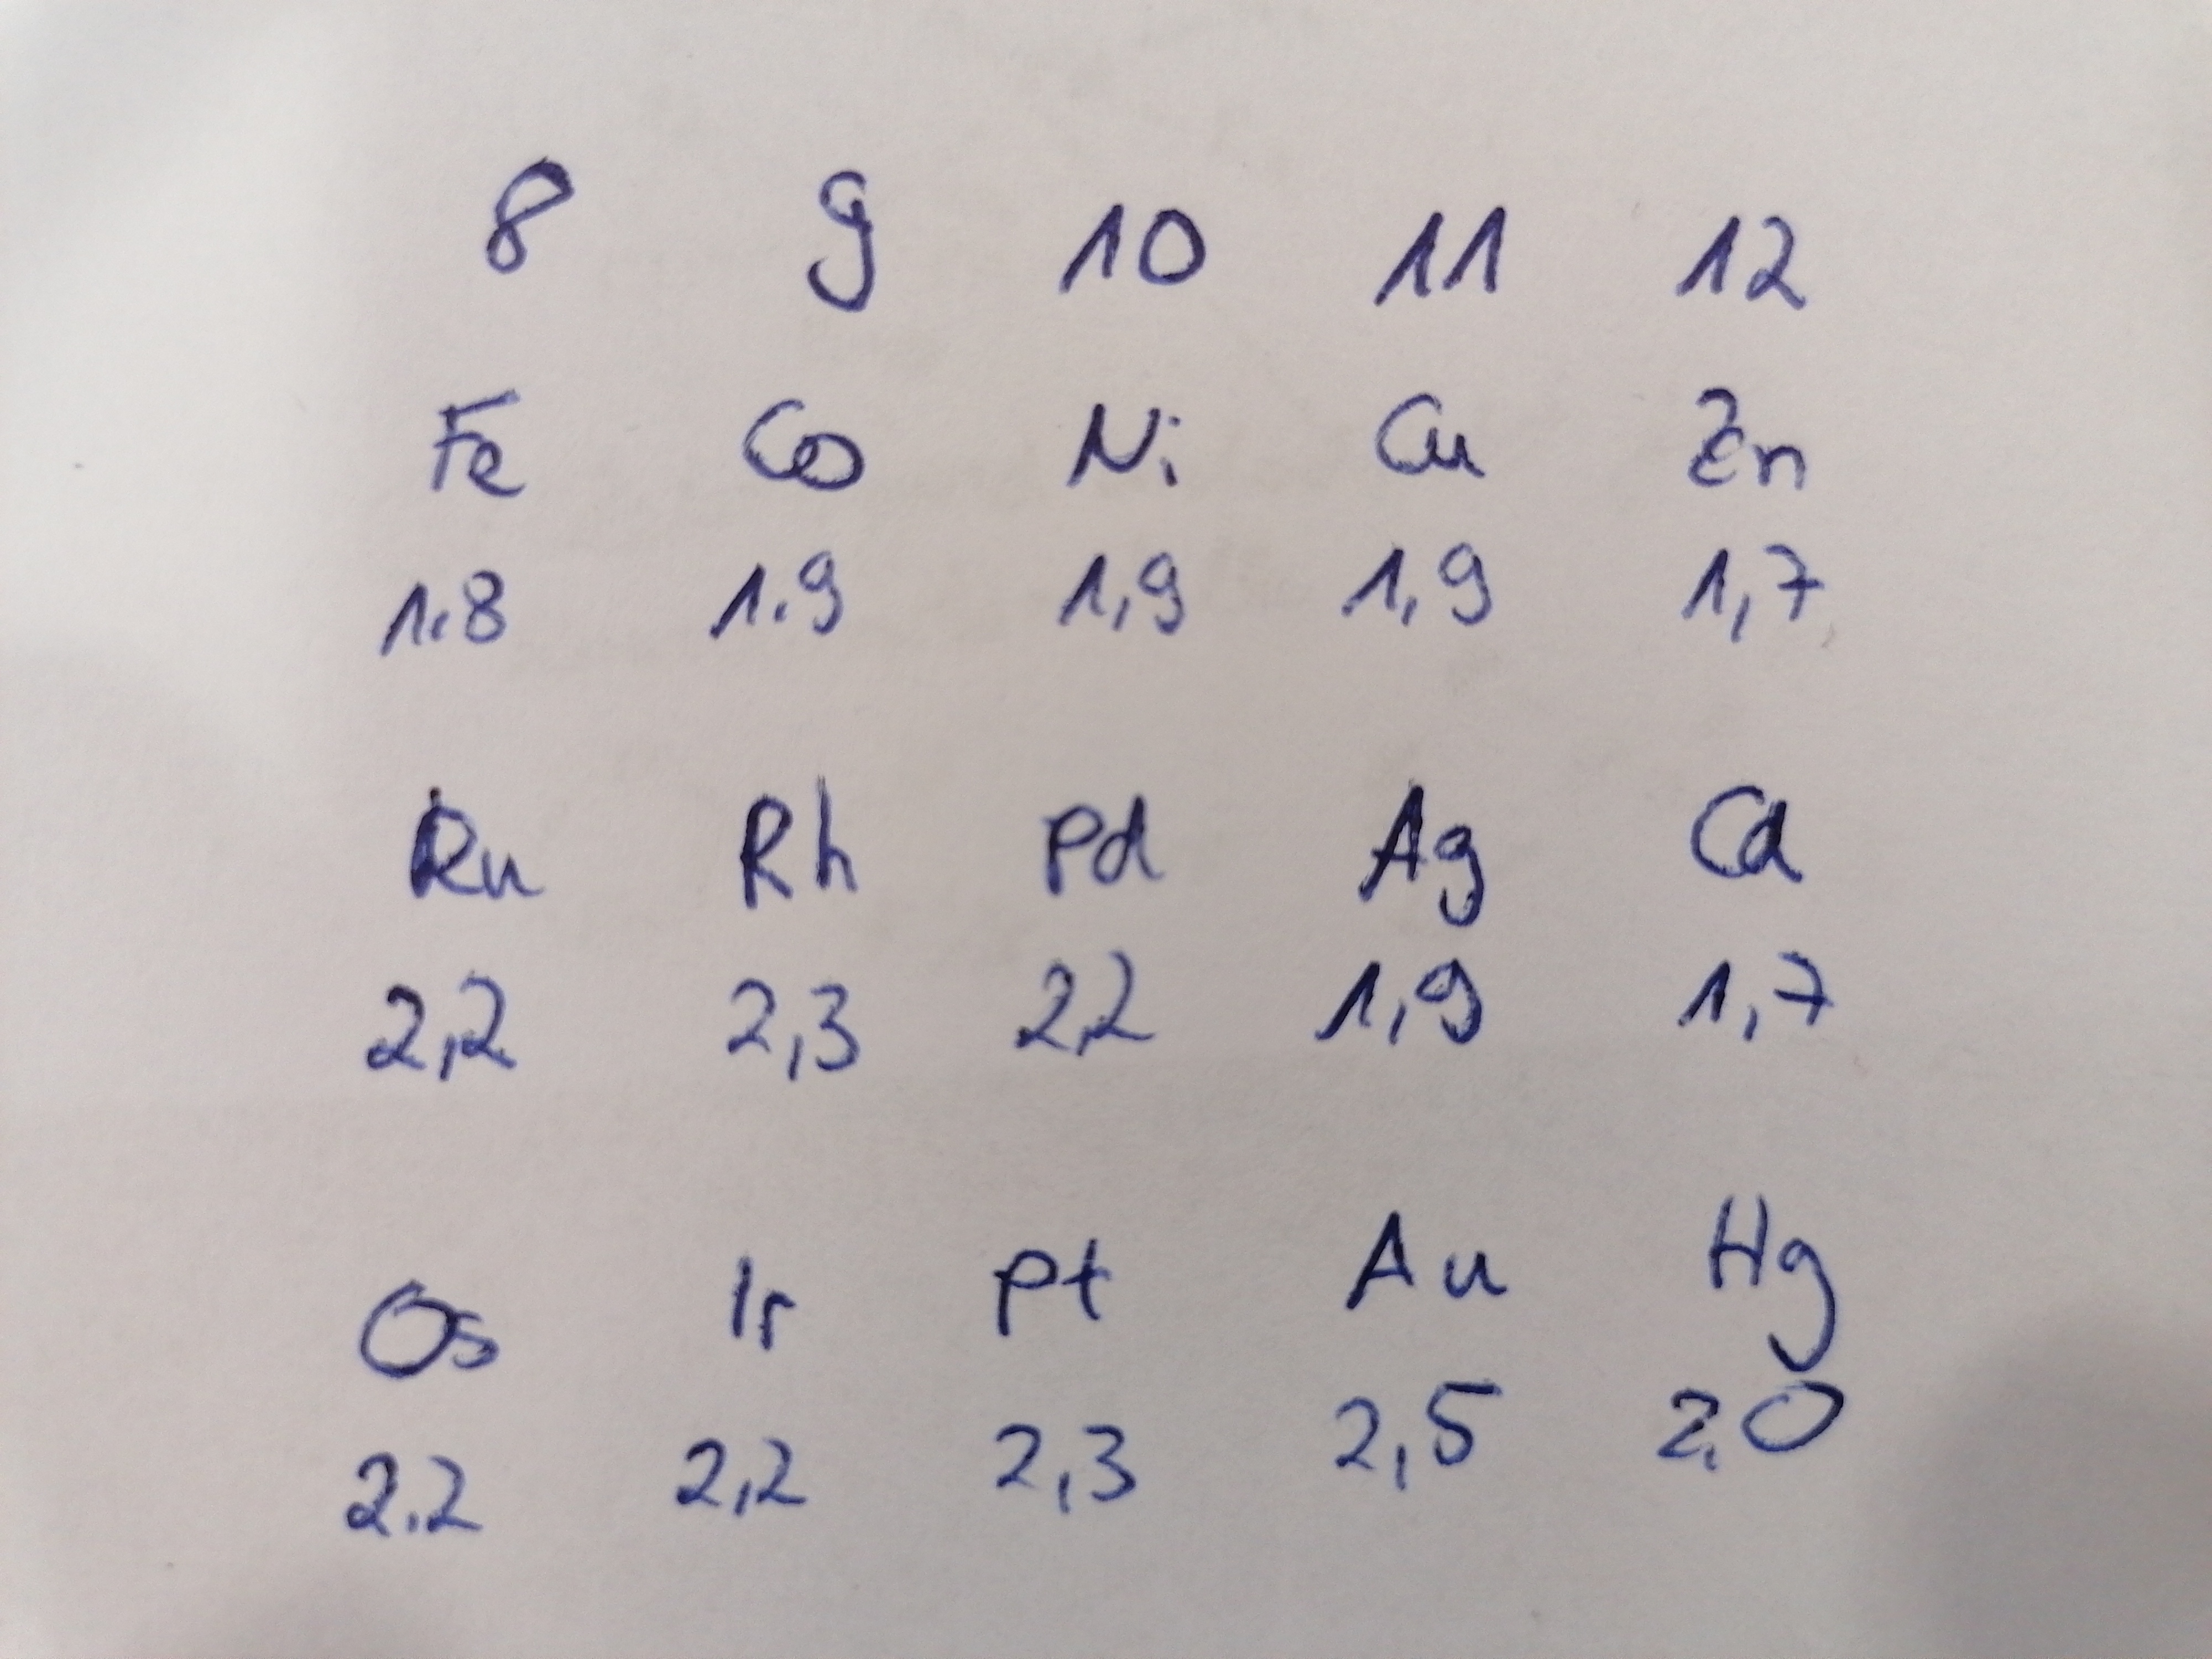 8 9 10 11 12
Fe Co Ni Cu Zn
1.8 1.9 1,9 1,9 1,7
Ru Rh Pd Ag Cd
2,2 2,3 2,2 1,9 1,7
Os Ir Pt Au Hg
2.2 2,2 2,3 2,5 2,0